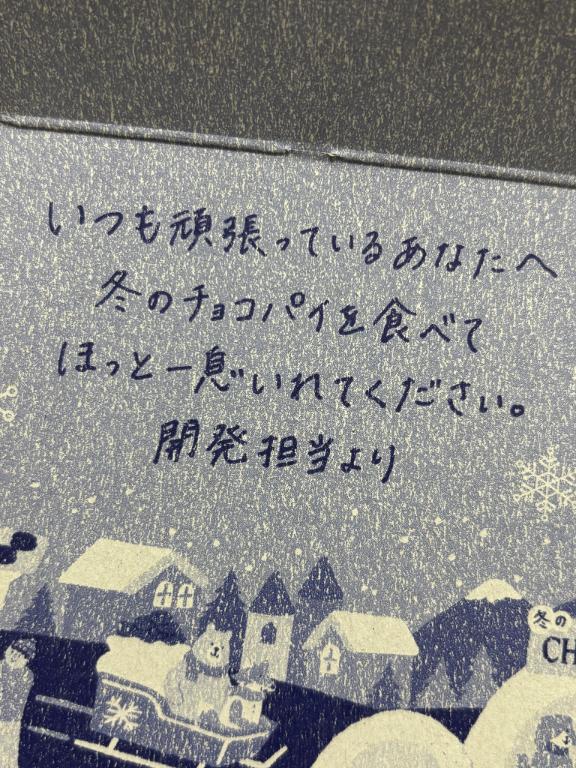 いつも頑張っているあなたへ
冬のチョコパイを食べて
ほっと一息いれてください。
開発担当より
冬の
CH